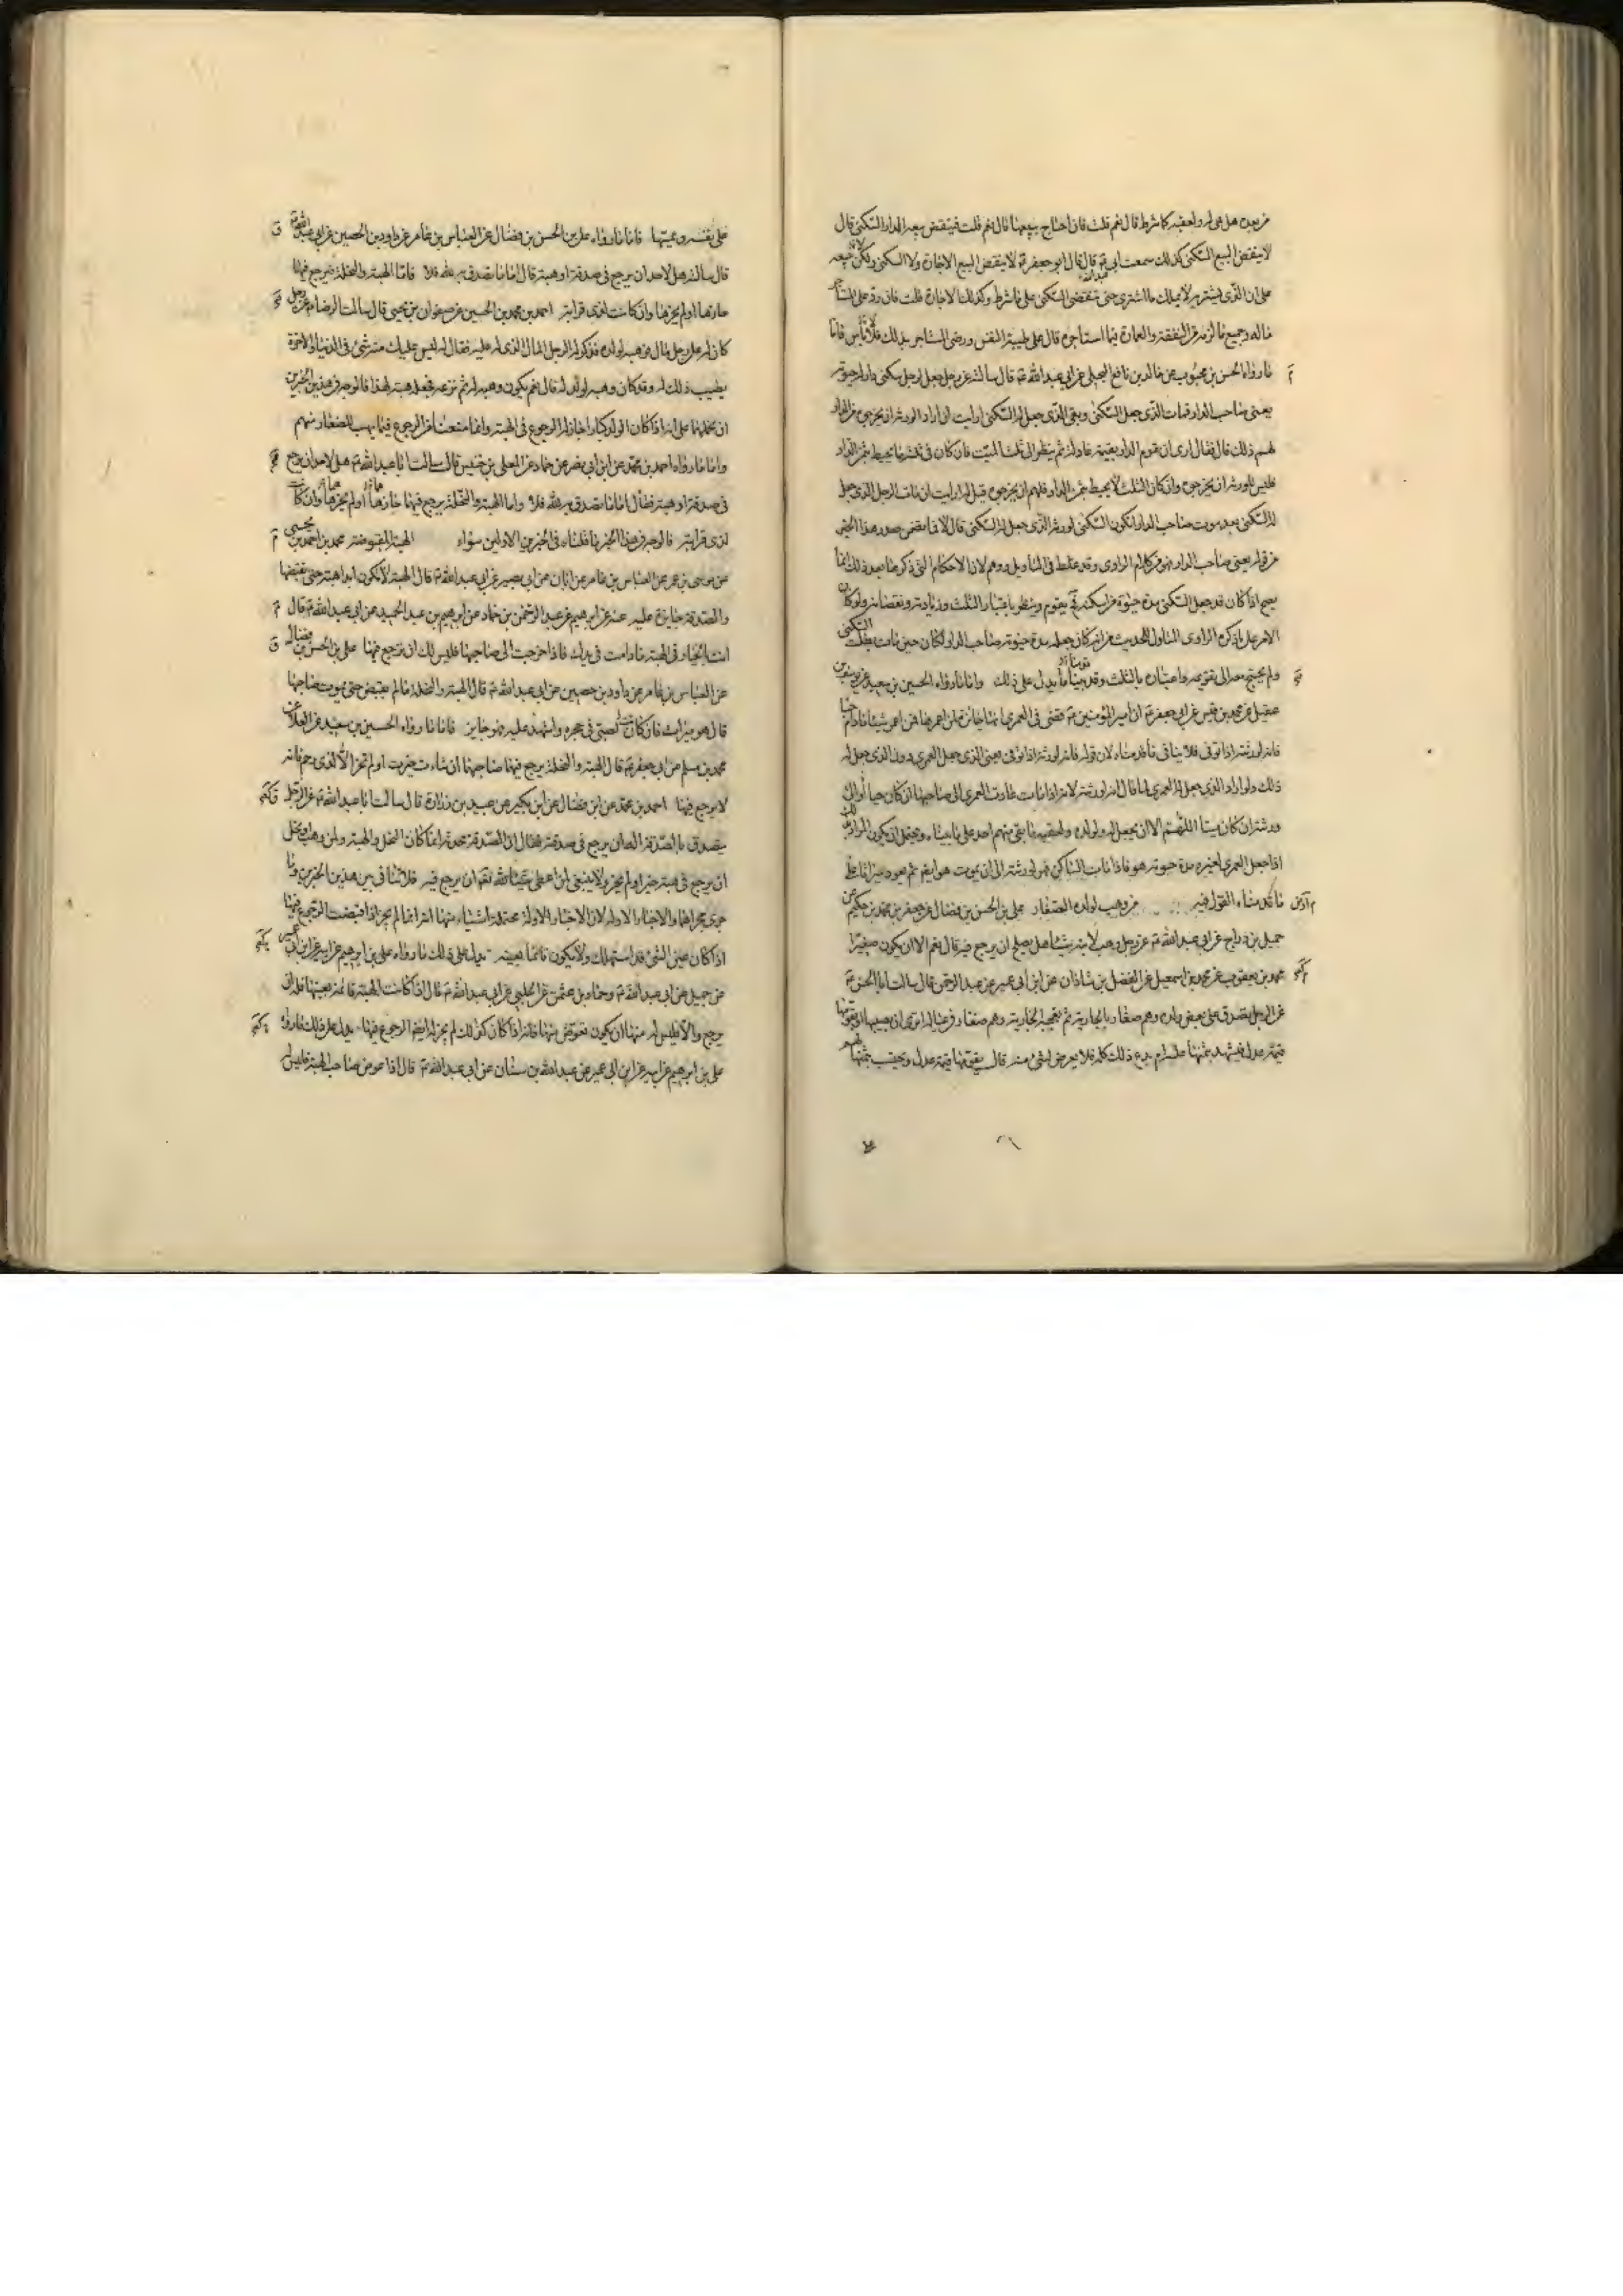 من بعده هل هي له ولعقبه كما شرط قال نعم قلت فان احتاج يبيعها قال نعم قلت فينقض بيعه الدار السكنى قال
لا ينقض البيع السكنى كذلك سمعت ابي ع قال قال ابو جعفر ع لا ينقض البيع الاجارة ولا السكنى ولكن يبيعه
على ان الذي يشتريه لا يملك ما اشترى حتى تنقضي السكنى على ما شرط وكذلك الاجارة قلت فان رد على المستاجر
ماله وجميع ما لزمه من النفقة والعمارة فيما استاجره قال على طيبة النفس ورضى المستاجر بذلك فلا باس فاما
ما رواه الحسن بن محبوب عن خالد بن نافع البجلي عن ابي عبد الله ع قال سالته عن رجل جعل لرجل سكنى دار له حيوته
يعني صاحب الدار فمات الذي جعل السكنى وبقي الذي جعل له السكنى ارايت ان اراد الورثة ان يخرجوه من الدار
لهم ذلك قال فقال ارى ان تقوم الدار بقيمة عادلة ثم ينظر الى ثلث الميت فان كان في ثلثه ما يحيط بثمن الدار
فليس للورثة ان يخرجوه وان كان الثلث لا يحيط بثمن الدار فلهم ان يخرجوه قيل له ارايت ان مات الرجل الذي جعل
له السكنى بعد موت صاحب الدار تكون السكنى لورثة الذي جعل له السكنى قال لا فما تضمن صدر هذا الخبر
من قوله يعني صاحب الدار هو من كلام الراوي وقد غلط في التاويل ووهم لان الاحكام التي ذكرها بعد ذلك انما
يصح اذا كان قد جعل السكنى مدة حيوة من اسكنه فحينئذ يقوم وينظر باعتبار الثلث وزيادته ونقصانه ولو كان
الامر على ما ذكره الراوي المتاول للحديث من انه كان جعله مدة حيوته صاحب الدار لكان حين مات بطلت السكنى
ولم يحتج معه الى تقويمه واعتباره بالثلث وقد بينا ما يدل على ذلك واما ما رواه الحسين بن سعيد عن يوسف بن
عقيل عن محمد بن قيس عن ابي جعفر ع ان امير المؤمنين ع قضى في العمرى انها جائزة لمن اعمرها فمن اعمر شيئا ما دام حيا
فانه لورثته اذا توفى فلا ينافي ما قدمناه لان قوله فانه لورثته اذا توفى يعني الذي جعل العمرى دون الذي جعل له
ذلك ولو اراد الذي جعل له العمرى لما قال انه لورثته لانه اذا مات عادت العمرى الى صاحبها ان كان حيا او الى
ورثته ان كان ميتا اللهم الا ان يجعل له ولولده ولعقبه ما بقي منهم احد على ما بيناه ويحتمل ان يكون المراد
اذا جعل العمرى لغيره مدة حيوته هو فاذا مات الساكن فهو لورثته الى ان يموت هو ايضا ثم يعود ميراثا على
ما قدمناه القول فيه من وهب لولده الصغار علي بن الحسن بن فضال عن جعفر بن محمد بن حكيم عن
جميل بن دراج عن ابي عبد الله ع عن رجل وهب لابنه شيئا هل يصلح ان يرجع فيه قال نعم الا ان يكون صغيرا
محمد بن يعقوب عن محمد بن اسمعيل عن الفضل بن شاذان عن ابن ابي عمير عن عبد الرحمن قال سالت ابا الحسن ع
عن الرجل يتصدق على بعض ولده وهم صغار بالجارية ثم تعجبه الجارية وهم صغار في عياله اترى ان يصيبها او يقومها
قيمة عدل فيشهد بثمنها عليه ام يدع ذلك كله فلا يعرض لشيء منه قال يقومها قيمة عدل ويحتسب بثمنها لهم
على نفسه ويمسها فاما ما رواه علي بن الحسن بن فضال عن العباس بن عامر عن داود بن الحصين عن ابي عبد الله ع
قال سالته هل لاحد ان يرجع في صدقة او هبة قال اما ما تصدق به لله فلا واما الهبة والنحلة فيرجع فيها
حازها او لم يحزها وان كانت لذي قرابة احمد بن محمد بن الحسين عن صفوان بن يحيى قال سالت الرضا ع عن رجل
كان له على رجل مال فوهبه لولده فذكر له الرجل المال الذي له عليه فقال له ليس عليك منه شيء في الدنيا والاخرة
يطيب ذلك له وقد كان وهبه لولد له قال نعم يكون وهبه له ثم نزعه فجعله هبة لهذا فالوجه في هذين الخبرين
ان نحملهما على انه اذا كان الولد كبارا جاز له الرجوع في الهبة وانما منعنا من الرجوع فيما يهب للصغار منهم
واما ما رواه احمد بن محمد عن ابن ابي نصر عن حماد عن المعلى بن خنيس قال سالت ابا عبد الله ع هل لاحد ان يرجع
في صدقة او هبة فقال اما ما تصدق به لله فلا واما الهبة والنحلة يرجع فيها حازها او لم يحزها وان كانت
لذي قرابته فالوجه في هذا الخبر ما قلناه في الخبرين الاولين سواء الهبة المقبوضة محمد بن احمد بن يحيى
عن موسى بن عمر عن العباس بن عامر عن ابان عن ابي بصير عن ابي عبد الله ع قال الهبة لا تكون ابدا هبة حتى يقبضها
والصدقة جايزة عليه عنه عن ابرهيم عن عبد الرحمن بن حماد عن ابرهيم بن عبد الحميد عن ابي عبد الله ع قال
انت بالخيار في الهبة ما دامت في يدك فاذا خرجت الى صاحبها فليس لك ان ترجع فيها علي بن الحسن بن فضال
عن العباس بن عامر عن داود بن حصين عن ابي عبد الله ع قال الهبة والنحلة ما لم يقبض حتى يموت صاحبها
قال هو ميراث فان كانت لصبي في حجره واشهد عليه فهو جايز فاما ما رواه الحسين بن سعيد عن العلا عن
محمد بن مسلم عن ابي جعفر ع قال الهبة والنحلة يرجع فيها صاحبها ان شاء حيزت او لم تحز الا لذي رحم فانه
لا يرجع فيها احمد بن محمد عن ابن فضال عن ابن بكير عن عبيد بن زرارة قال سالت ابا عبد الله ع عن الرجل
يتصدق بالصدقة اله ان يرجع في صدقته فقال ان الصدقة محدثة انما كان النحل والهبة ولمن وهب او نحل
ان يرجع في هبته حيز او لم يحز ولا ينبغي لمن اعطى شيئا لله تعالى ان يرجع فيه فلا تنافي بين هذين الخبرين وما
جرى مجراهما والاخبار الاولة لان الاخبار الاولة محتملة اشياء منها انه انما لم يجز اذا قبضت الرجوع فيها
اذا كان عين الشيء قد استهلك ولا يكون قائما بعينه يدل على ذلك ما رواه علي بن ابرهيم عن ابيه عن ابن ابي عمير
عن جميل عن ابي عبد الله ع وحماد بن عثمن عن الحلبي عن ابي عبد الله ع قال اذا كانت الهبة قائمة بعينها فله ان
يرجع والا فليس له منها ان يكون تعوض منها فانه اذا كان كذلك لم يجز له ايضا الرجوع فيها يدل على ذلك ما رواه
علي بن ابرهيم عن ابيه عن ابن ابي عمير عن عبد الله بن سنان عن ابي عبد الله ع قال اذا عوض صاحب الهبة فليس له